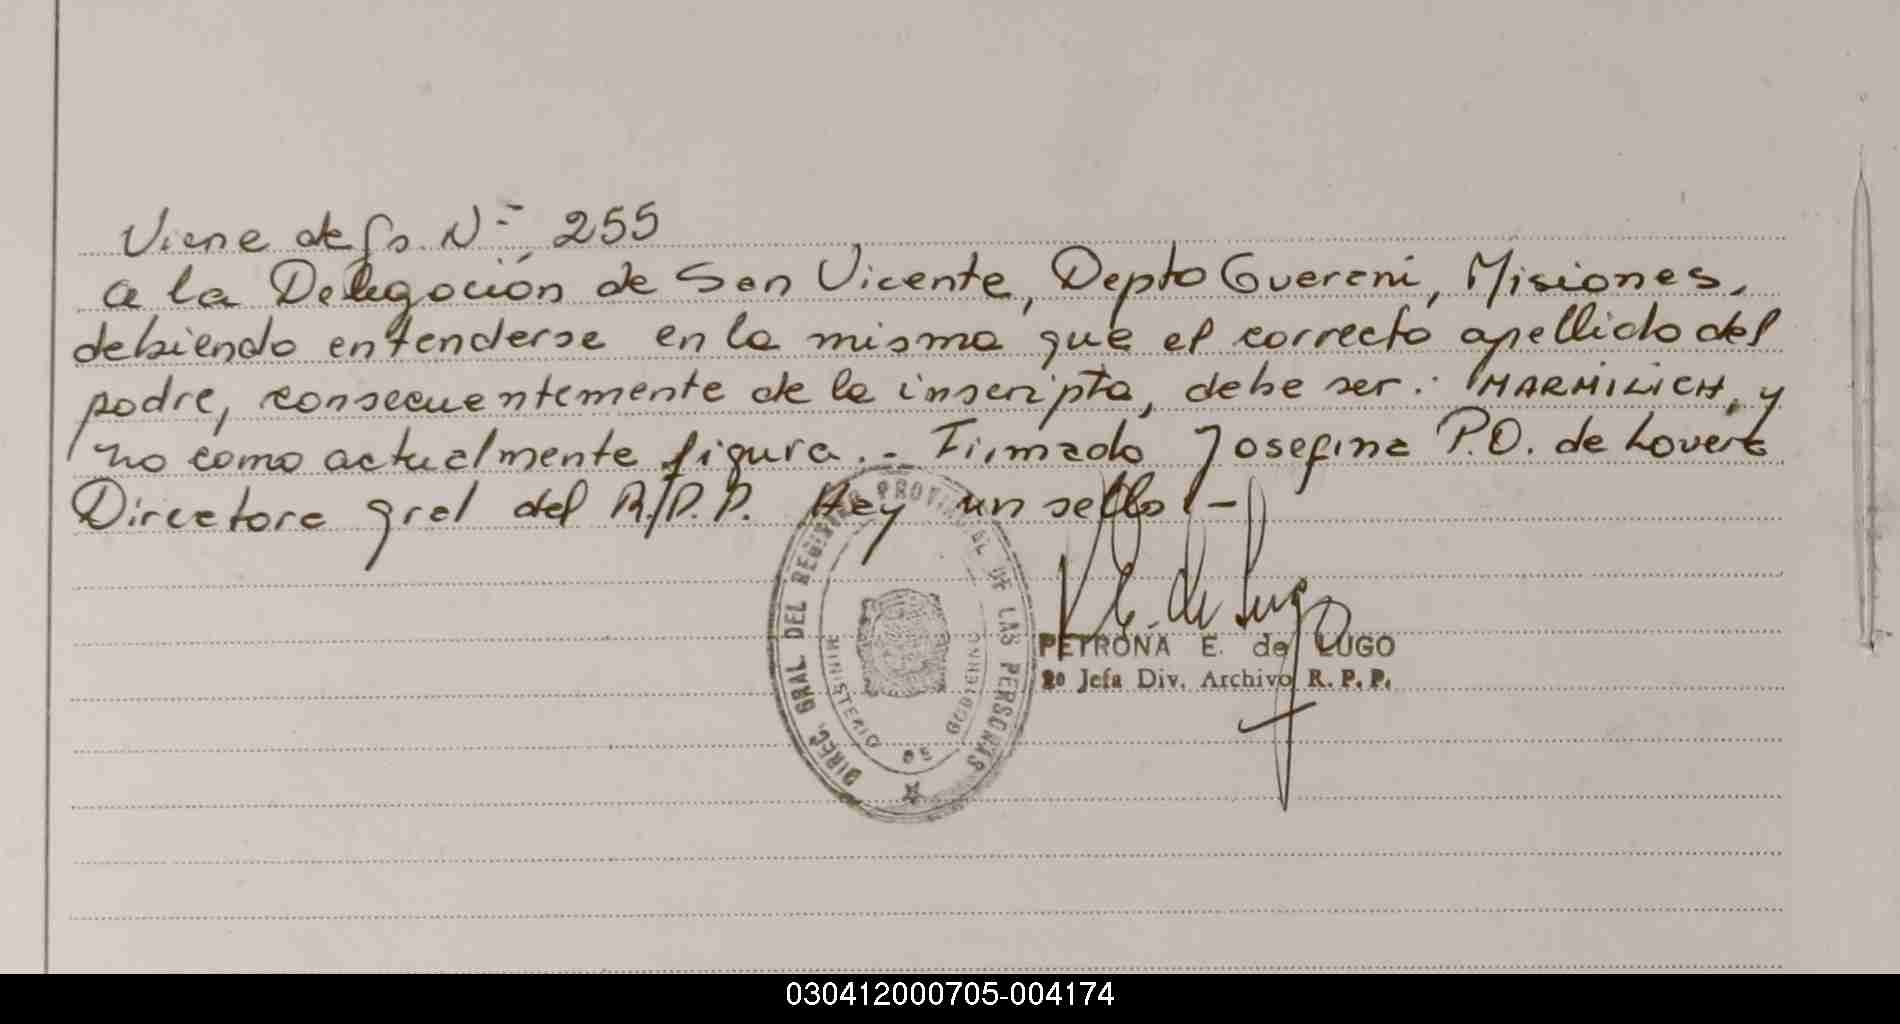 Viene de fs. Nº 255
a la Delegación de San Vicente, Depto Guarani, Misiones,
debiendo entenderse en la misma que el correcto apellido del
padre, consecuentemente de la inscripta, debe ser: MARMILICH, y
no como actualmente figura.- Firmado Josefina P.O. de Lovera
Directora gral del R.P.P. Hay un sello.-
DIREC. GRAL DEL REGISTRO PROVINCIAL DE LAS PERSONAS
MINISTERIO DE GOBIERNO
PETRONA E. de LUGO
2º Jefa Div. Archivo R. P. P.
030412000705-004174